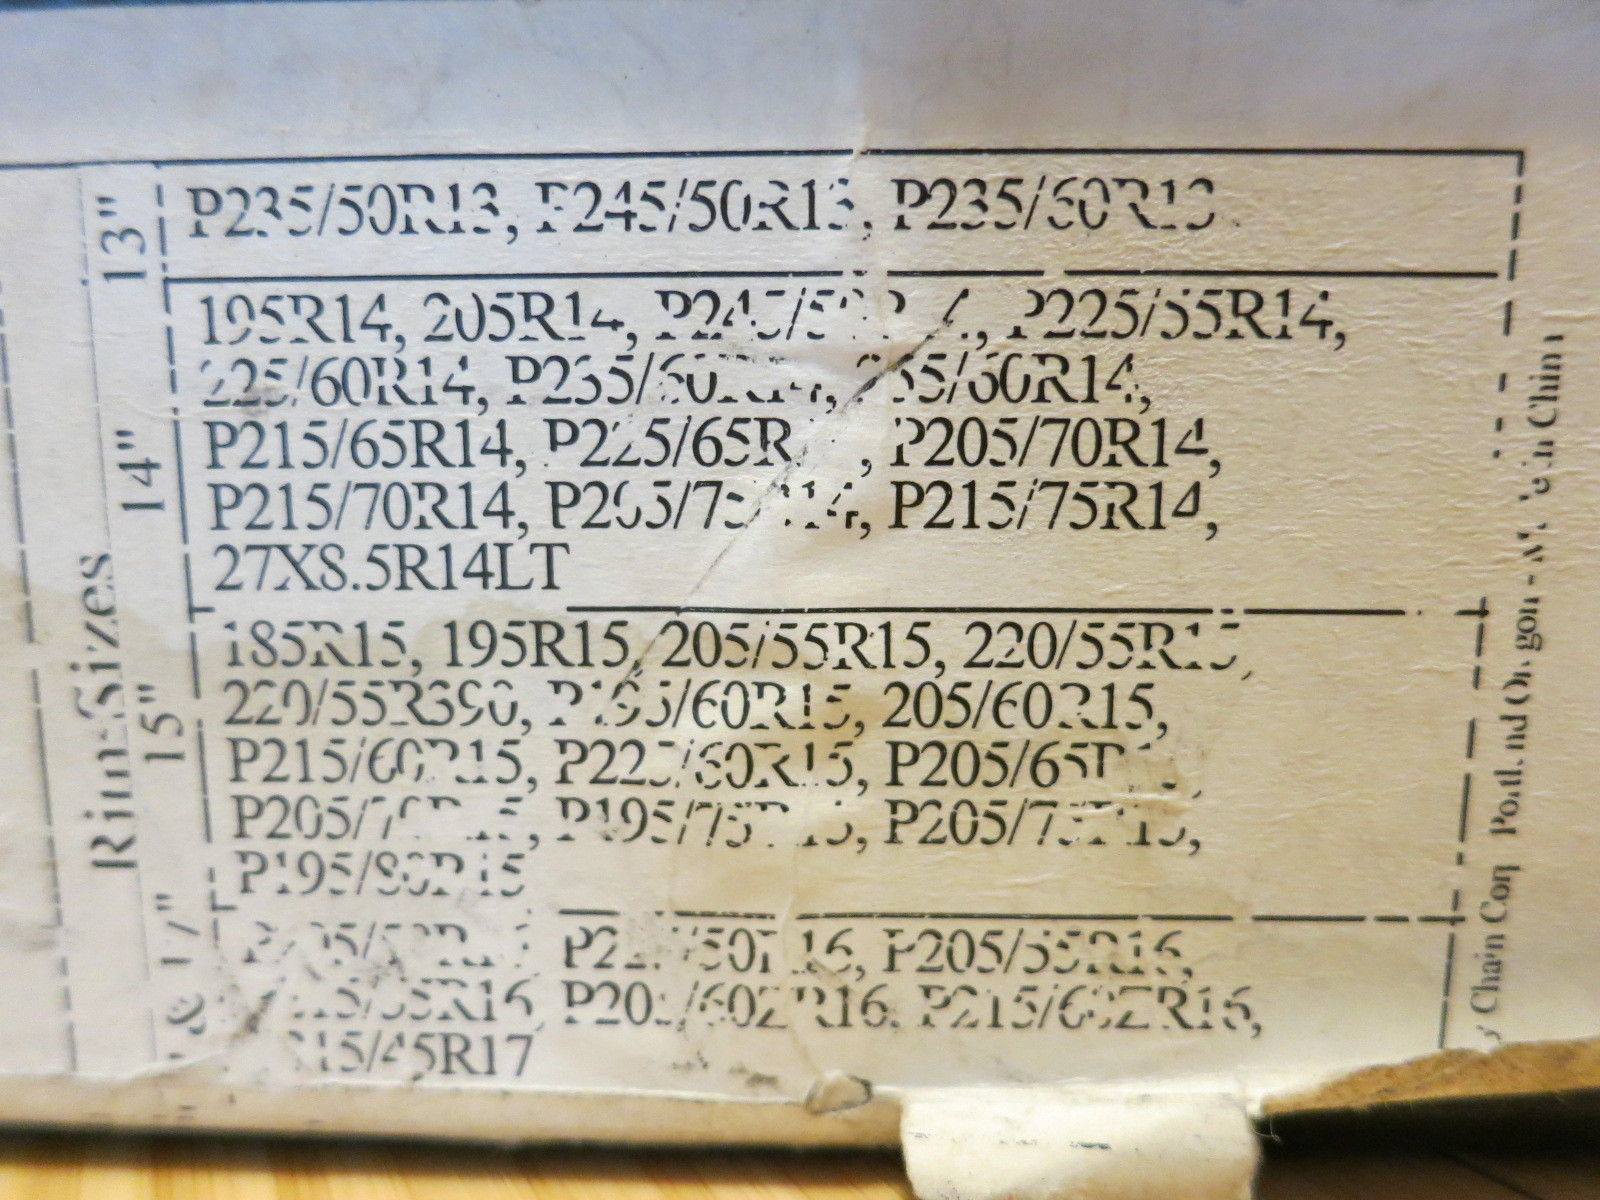 Rim Sizes
13"
P235/50R13, P245/50R13, P235/60R13
14"
195R14, 205R14, P225/55R14,
225/60R14, P235/60R14,
P215/65R14, P225/65R P205/70R14,
P215/70R14, P205/75R14, P215/75R14,
27X8.5R14LT
15"
185R15, 195R15, 205/55R15, 220/55R15,
220/55R390, P195/60R15, 205/60R15,
P215/60R15, P225/60R15, P205/65R
P205/70R15, P195/75R15, P205/75R15,
P195/80R15
& 17"
P205/55R16,
P205/60ZR16, P215/60ZR16,
15/45R17
Chain Corp Portland Oregon - Made in China